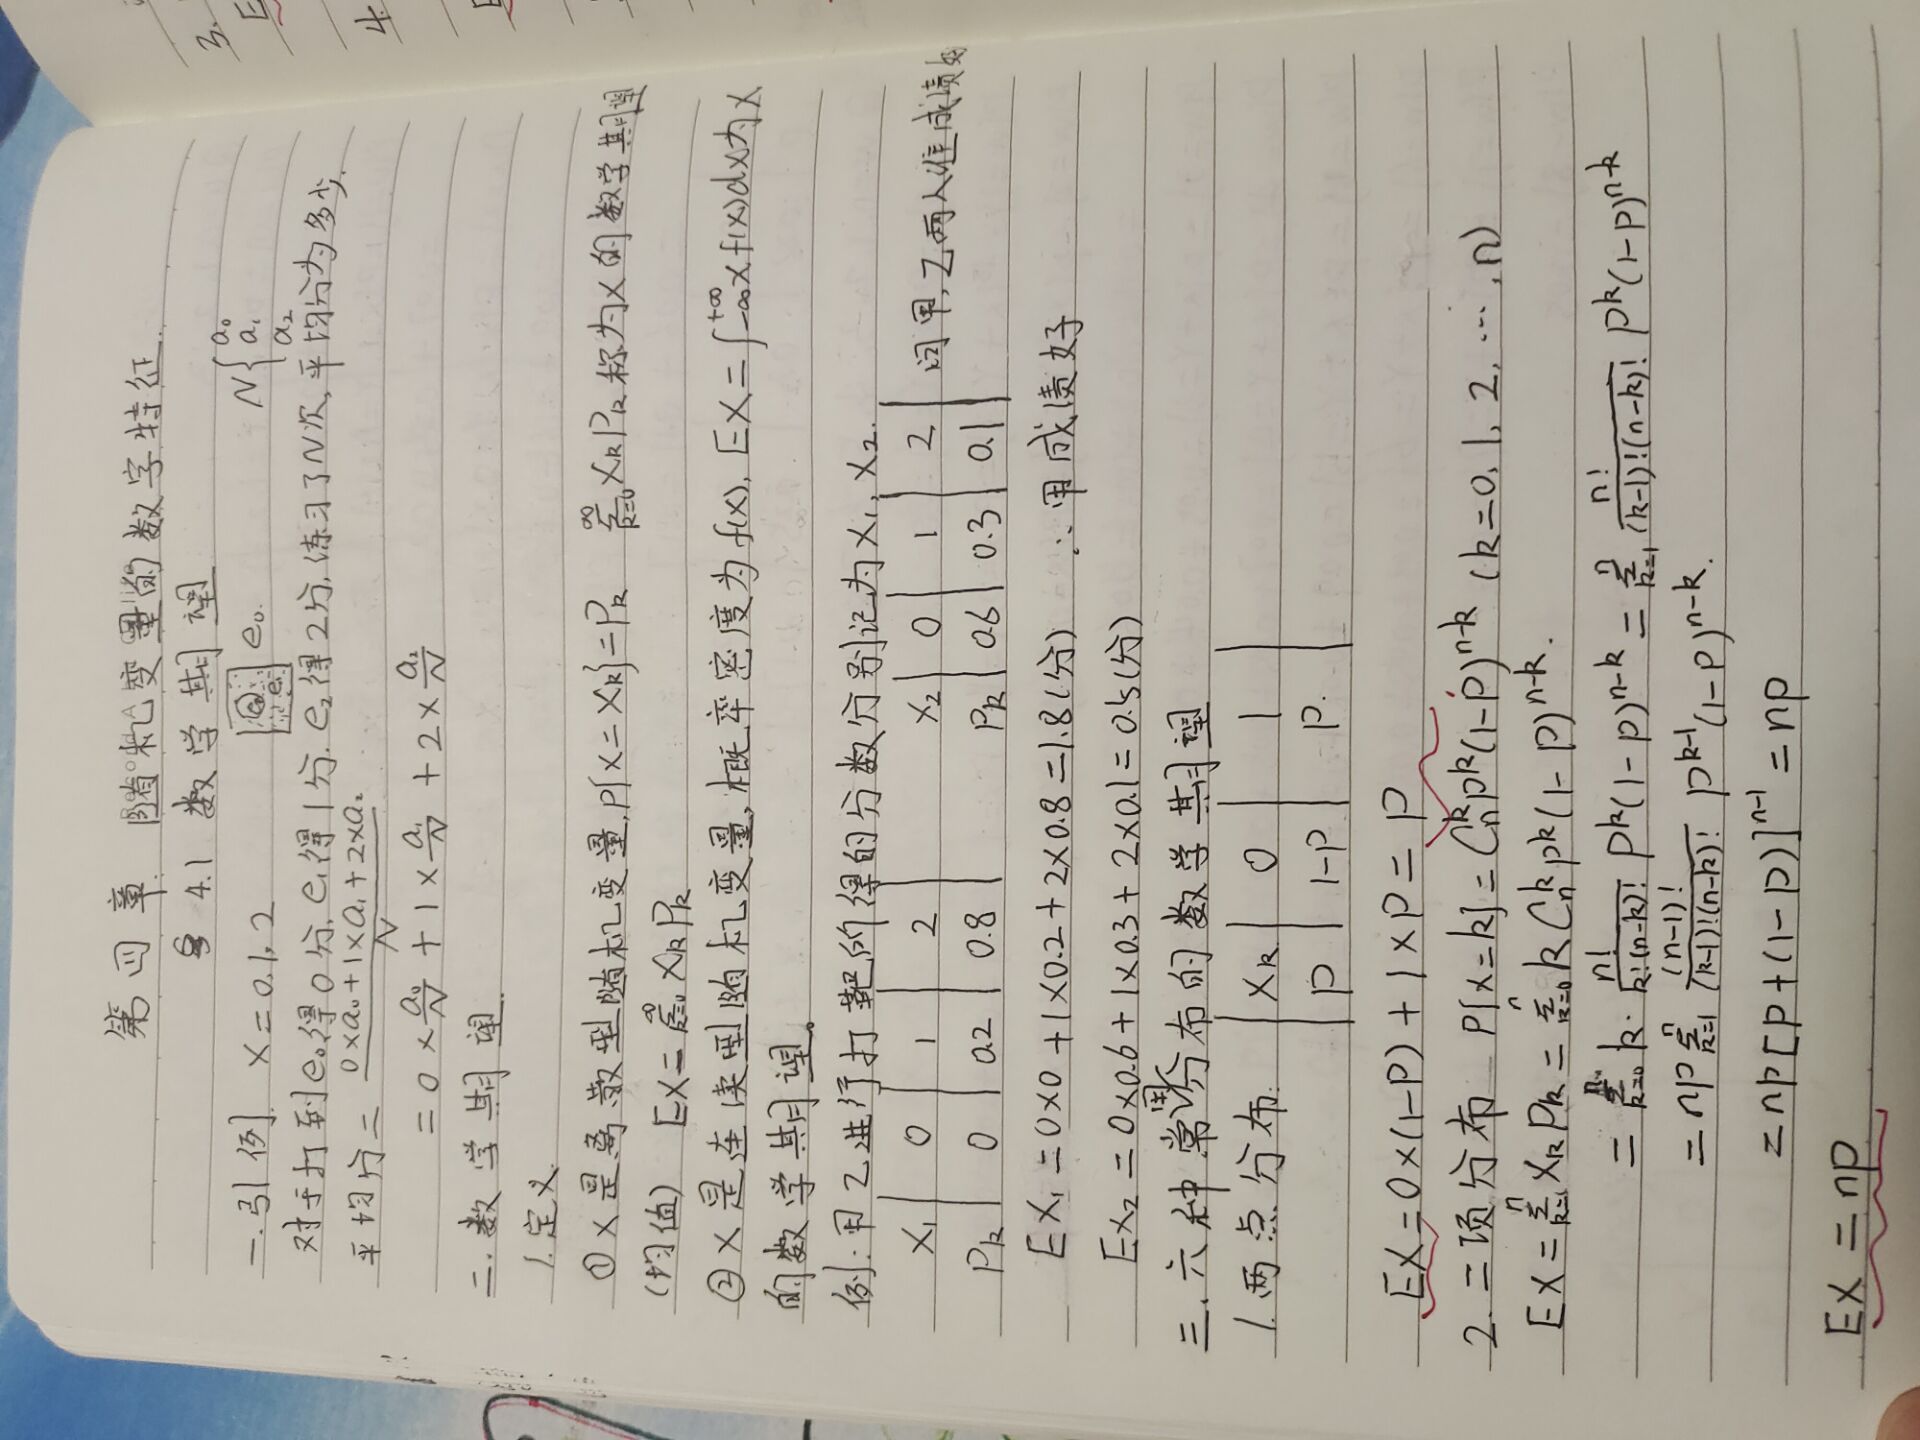 第四章 随机变量的数字特征
§ 4.1 数学期望
一.引例 X=0.1.2 e₀. N{a₀ a₁ a₂
对于打到e₀得0分.e₁得1分.e₂得2分,练习了N次,平均分为多少.
平均分= (0×a₀+1×a₁+2×a₂)/N
=0×a₀/N+1×a₁/N+2×a₂/N
二.数学期望
1.定义
①X是离散型随机变量,P{X=Xk}=Pk ∑_{k=0}^{∞}XkPk称为X的数学期望
(均值) EX=∑_{k=0}^{∞}XkPk
②X是连续型随机变量,概率密度为f(x),EX=∫_{-∞}^{+∞}x.f(x)dx为X
的数学期望。
例:甲乙进行打靶的得的分数分别记为X₁,X₂.
X₁ | 0 | 1 | 2 | X₂ | 0 | 1 | 2 | 问甲,乙两人谁成绩好
Pk | 0 | 0.2 | 0.8 | Pk | 0.6 | 0.3 | 0.1
EX₁=0×0+1×0.2+2×0.8=1.8(分) ∴甲成绩好
EX₂=0×0.6+1×0.3+2×0.1=0.5(分)
三.六种常用分布的数学期望
1.两点分布. | Xk | 0 | 1 |
| P | 1-P | P. |
EX=0×(1-P)+1×P=P
2.二项分布 P{X=k}=Cₙᵏpᵏ(1-p)ⁿ⁻ᵏ (k=0.1.2.…,n)
EX=∑_{k=1}^{n}XkPk=∑_{k=0}^{n}kCₙᵏpᵏ(1-p)ⁿ⁻ᵏ.
=∑_{k=0}^{n}k·n!/(k!(n-k)!)pᵏ(1-p)ⁿ⁻ᵏ=∑_{k=1}^{n}n!/((k-1)!(n-k)!)pᵏ(1-p)ⁿ⁻ᵏ
=np∑_{k=1}^{n}(n-1)!/((k-1)!(n-k)!)pᵏ⁻¹(1-p)ⁿ⁻ᵏ.
=np[p+(1-p)]ⁿ⁻¹=np
EX=np